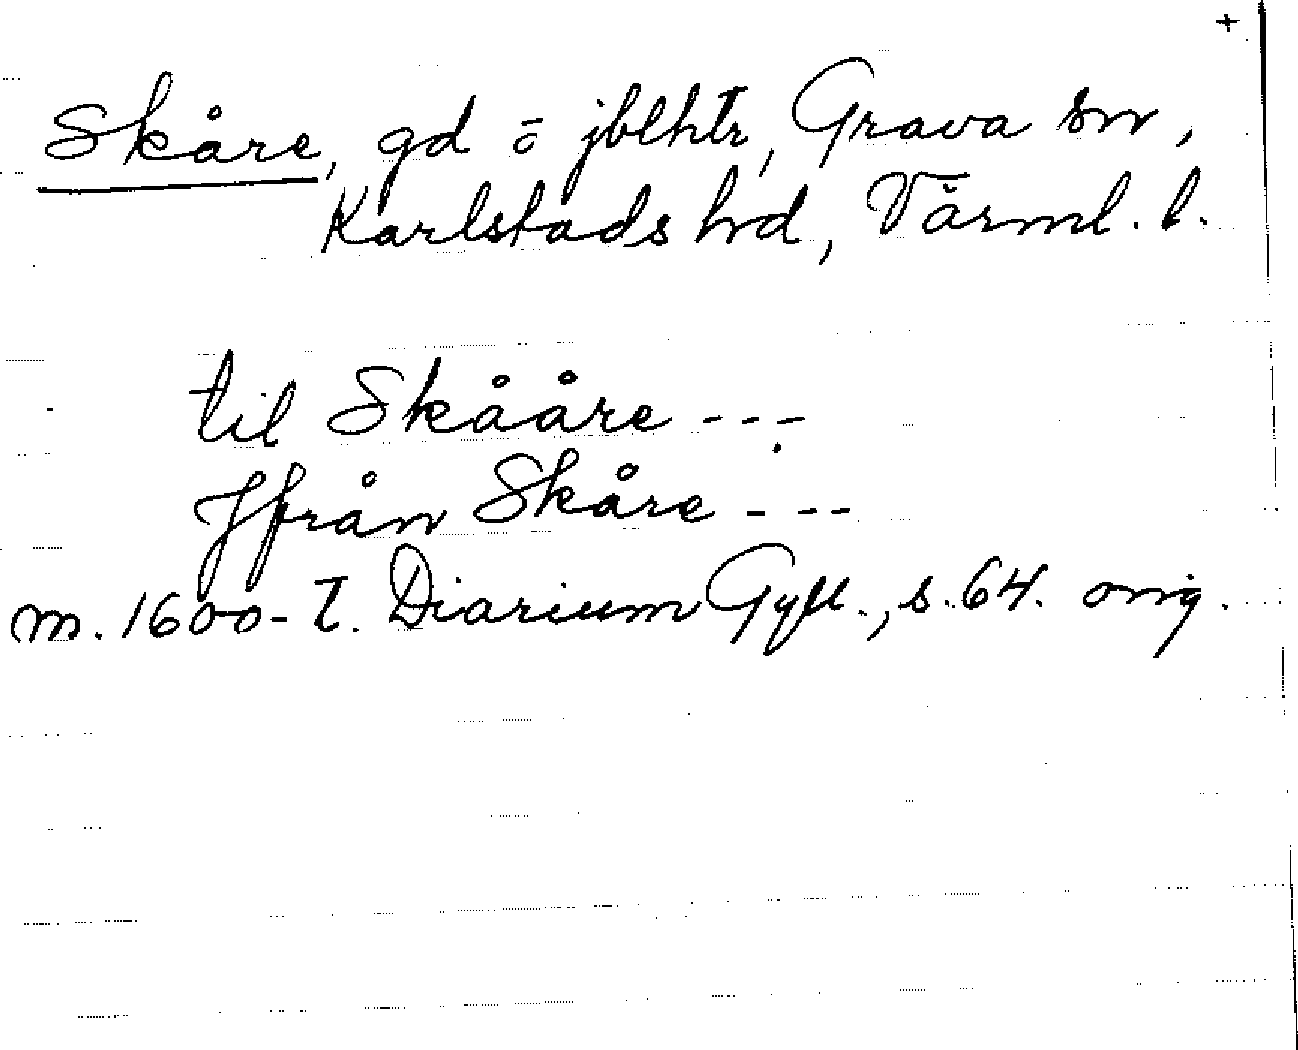 +
Skåre, gd o jblhtr, Grava sn,
Karlstads hd, Värml. l.
til Skååre ---
Jfrån Skåre ---
m. 1600-t. Diarium Gyll., s. 64. orig.